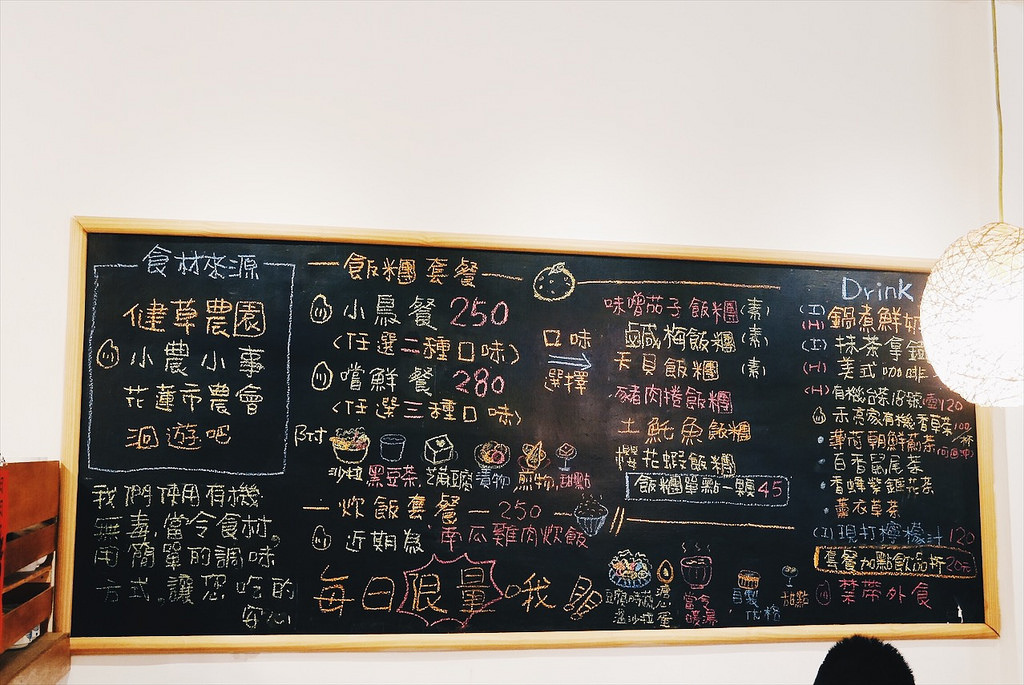 食材來源
健草農園
小農小事
花蓮市農會
洄遊吧
我們使用有機
無毒,當令食材。
用簡單的調味
方式,讓您吃的
安心
飯糰套餐
小鳥餐 250
(任選二種口味)
嚐鮮餐 280
(任選三種口味)
附
沙拉 黑豆茶 芝麻豆腐 漬物 煎物 甜點
炊飯套餐 250
近期為 南瓜雞肉炊飯
每日限量哦
口味
選擇
味噌茄子飯糰(素)
鹹梅飯糰(素)
天貝飯糰(素)
豬肉捲飯糰
土魠魚飯糰
櫻花蝦飯糰
飯糰單點一顆45
豆腐時蔬
溫沙拉
溫心蛋
當令
暖湯
自製
甜點
Drink
(I)(H) 鍋煮鮮奶
(I)(H) 抹茶拿鐵
(I)(H) 美式咖啡
(H) 有機台茶18號 壺120
百香鼠尾草
香蜂紫錐花茶
薰衣草茶
(I) 現打檸檬汁 120
套餐加點飲品折20元
禁帶外食